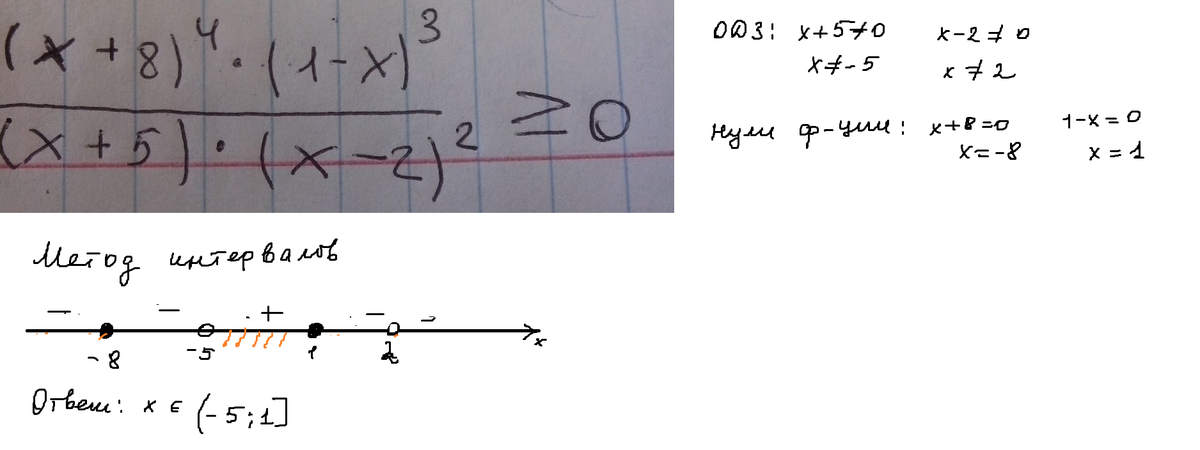 (x + 8)⁴ · (1 - x)³
(x + 5) · (x - 2)² ≥ 0
ОДЗ: x+5≠0 x-2≠0
x≠-5 x≠2
Нули ф-ции: x+8=0 1-x=0
x=-8 x=1
Метод интервалов
- - + - -
-8 -5 1 2 x
Ответ: x ∈ (-5;1]